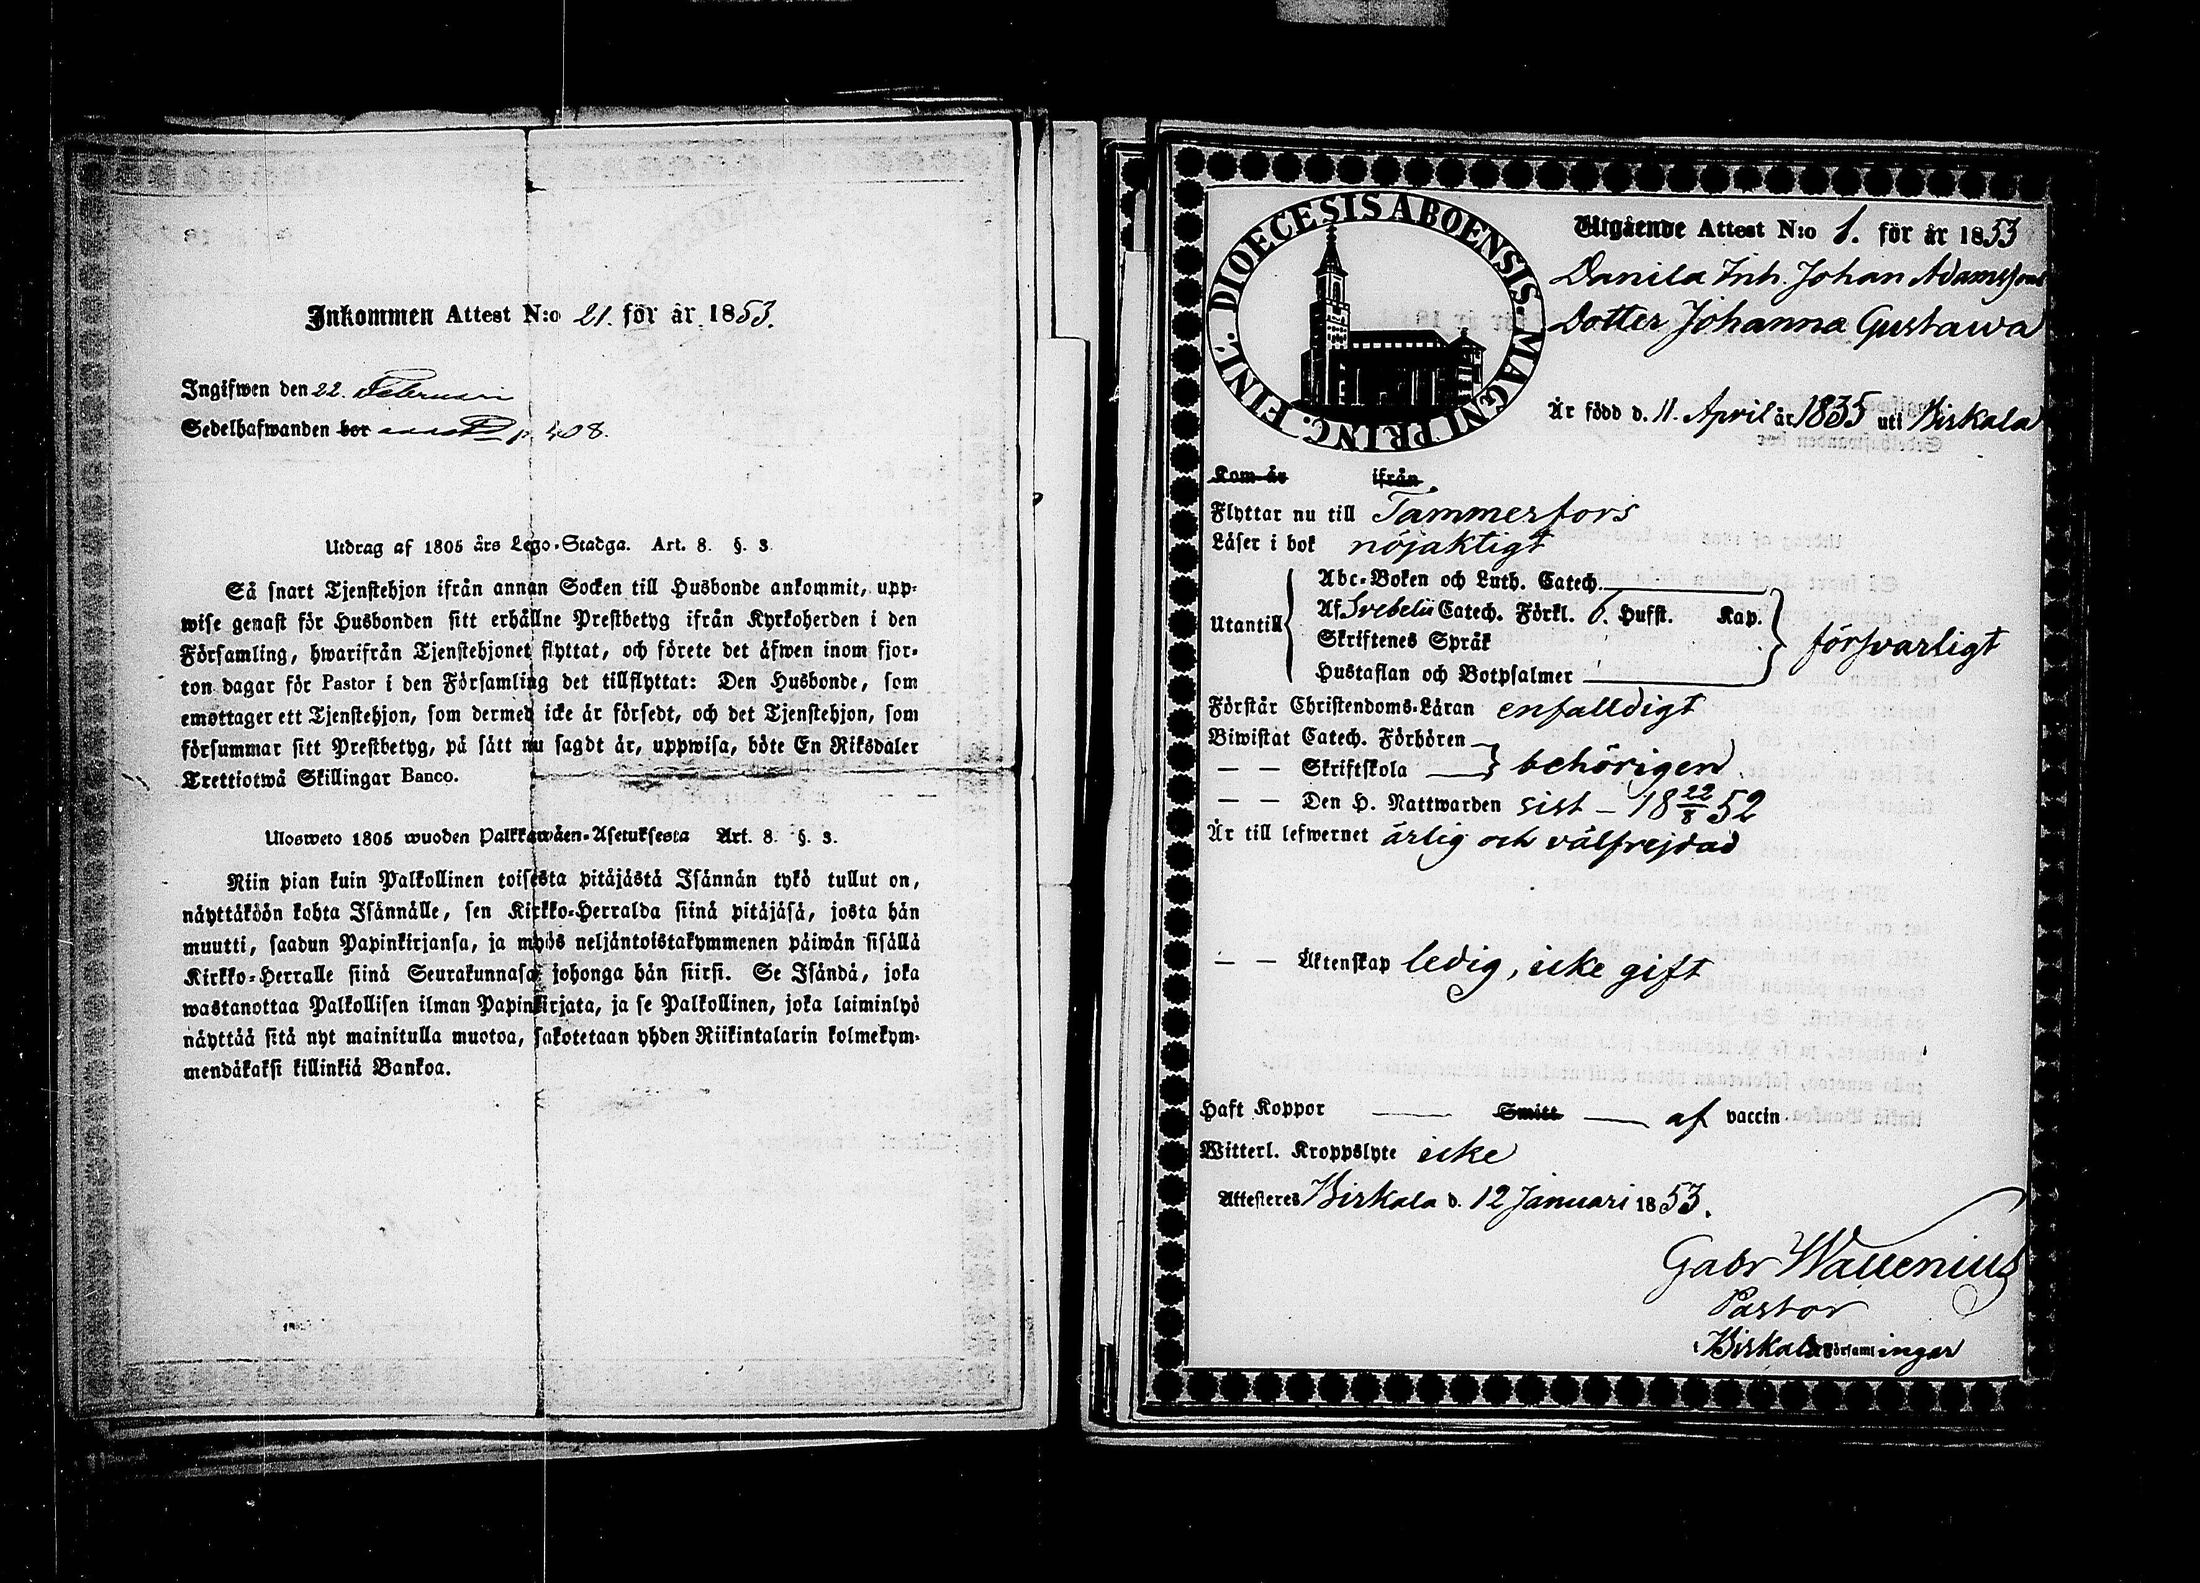 Inkommen Attest N:o 21. för år 1853.
Ingifwen den 22. Februari
Sedelhafwanden bor p. 408.
Utdrag af 1805 års Lego-Stadga. Art. 8. §. 3.
Så snart Tjenstehjon ifrån annan Socken till Husbonde ankommit, upp-
wise genast för Husbonden sitt erhållne Prestbetyg ifrån Kyrkoherden i den
Församling, hwarifrån Tjenstehjonet flyttat, och förete det äfwen inom fjor-
ton dagar för Pastor i den Församling det tillflyttat: Den Husbonde, som
emottager ett Tjenstehjon, som dermed icke är försedt, och det Tjenstehjon, som
försummar sitt Prestbetyg, på sätt nu sagdt är, uppwisa, böte En Riksdaler
Trettiotwå Skillingar Banco.
Ulosweto 1805 wuoden Palkkawäen-Asetuksesta Art. 8. §. 3.
Niin pian kuin Palkollinen toisesta pitäjästä Isännän tykö tullut on,
näyttäköön kohta Isännälle, sen Kirkko-Herralda siinä pitäjäsä, josta hän
muutti, saadun Papinkirjansa, ja myös neljäntoistakymmenen päiwän sisällä
Kirkko-Herralle siinä Seurakunnasa johonga hän siirsi. Se Isändä, joka
wastanottaa Palkollisen ilman Papinkirjata, ja se Palkollinen, joka laiminlyö
näyttää sitä nyt mainitulla muotoa, sakotetaan yhden Riikintalarin kolmekym-
mendäkaksi killinkiä Bankoa.
DIOECESIS ABOENSIS. MAGNI PRINC. FINL.
Utgående Attest N:o 1. för år 1853
Danila Inh. Johan Adamssons
Dotter Johanna Gustawa
Är född d. 11. April år 1835 uti Birkala
Kom år ifrån
Flyttar nu till Tammerfors
Läser i bok nöjaktigt
Abc-Boken och Luth. Catech.
Utantill Af Srebelii Catech. Förkl. 6. Hufst. Kap. försvarligt
Skriftenes Språk
Hustaflan och Botpsalmer
Förstår Christendoms-Läran enfalldigt
Biwistat Catech. Förhören
— — Skriftskola behörigen
— — Den H. Nattwarden sist — 18 22/8 52
Är till lefwernet ärlig och välfrejdad
— — Äktenskap ledig, icke gift
Haft Koppor — Smitt — af vaccin
Witterl. Kroppslyte icke
Attesteres Birkala d. 12 Januari 1853.
Gabr Wallenius
Pastor
i Birkala Församlingar